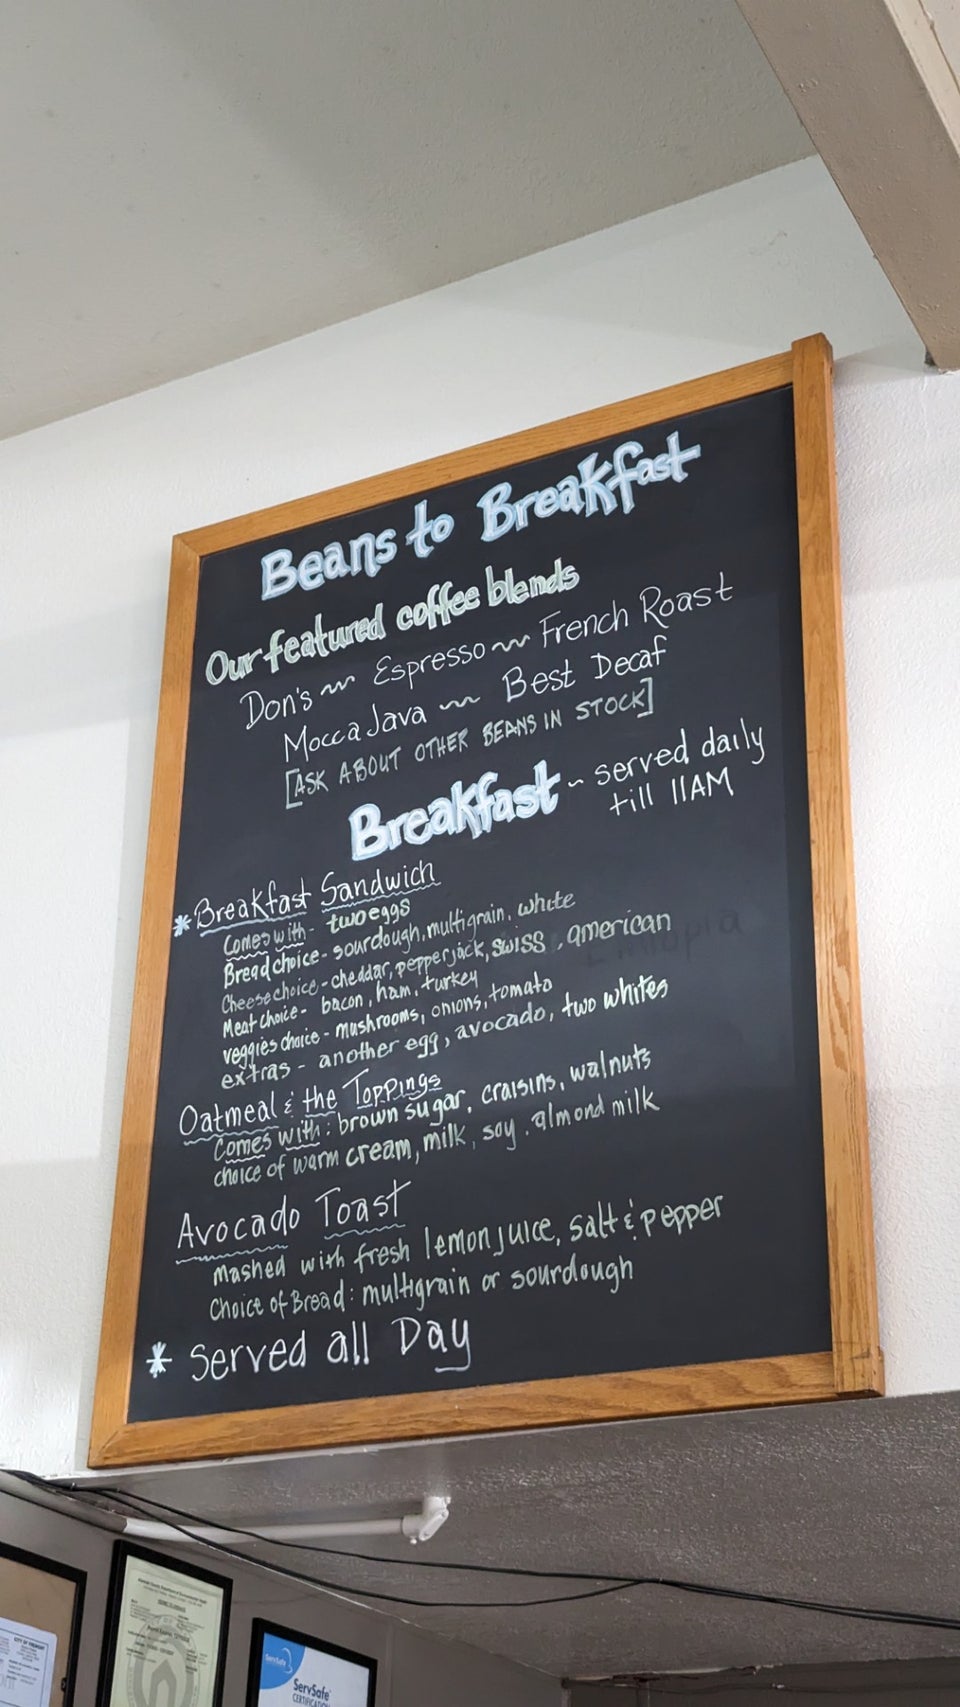 Beans to Breakfast
Our featured coffee blends
Don's ~ Espresso ~ French Roast
Mocca Java ~ Best Decaf
[ASK ABOUT OTHER BEANS IN STOCK]
Breakfast ~ served daily
till 11AM
* Breakfast Sandwich
Comes with - two eggs
Bread choice - sourdough, multigrain, white
Cheese choice - cheddar, pepperjack, swiss, american
Meat choice - bacon, ham, turkey
veggies choice - mushrooms, onions, tomato
extras - another egg, avocado, two whites
Oatmeal & the Toppings
Comes with: brown sugar, craisins, walnuts
choice of warm cream, milk, soy, almond milk
Avocado Toast
mashed with fresh lemon juice, salt & pepper
Choice of Bread: multigrain or sourdough
* Served all Day
CITY OF FREMONT
ServSafe
ServSafe
CERTIFICATION